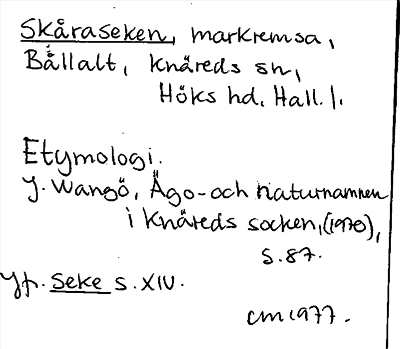 Skåraseken, markremsa,
Bållalt, Knäreds sn,
Höks hd. Hall. l.
Etymologi.
J. Wangö, Ägo- och naturnamnen
i Knäreds socken, (1970),
s. 87.
Jfr. Seke s. XIV.
CM 1977.